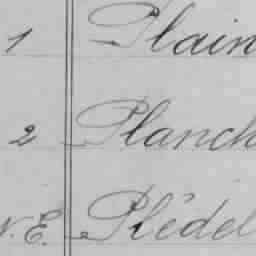 1 Plain
2 Planch
N.E. Plédel